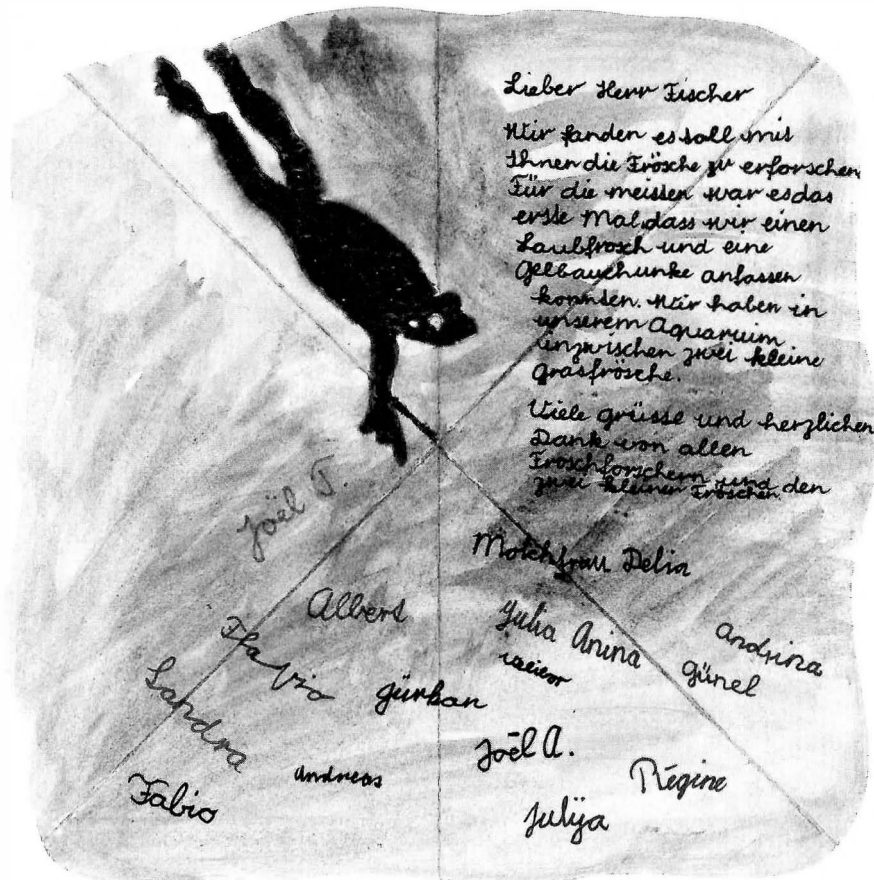 Lieber Herr Fischer
Wir fanden es toll mit
Ihnen die Frösche zu erforschen.
Für die meisten war es das
erste Mal, dass wir einen
Laubfrosch und eine
Gelbauchunke anfassen
konnten. Wir haben in
unserem Aquaruim
inzwischen zwei kleine
grasfrösche.
Viele grüsse und herzlichen
Dank von allen
Froschforschern und den
zwei kleinen Fröschen.
Joël T.
Molchfrau Delia
Albert
Julia Anina
Andrina
Flavio
Günel
Sandra
gürkan
Joël A.
Andreas
Régine
Fabio
Julija